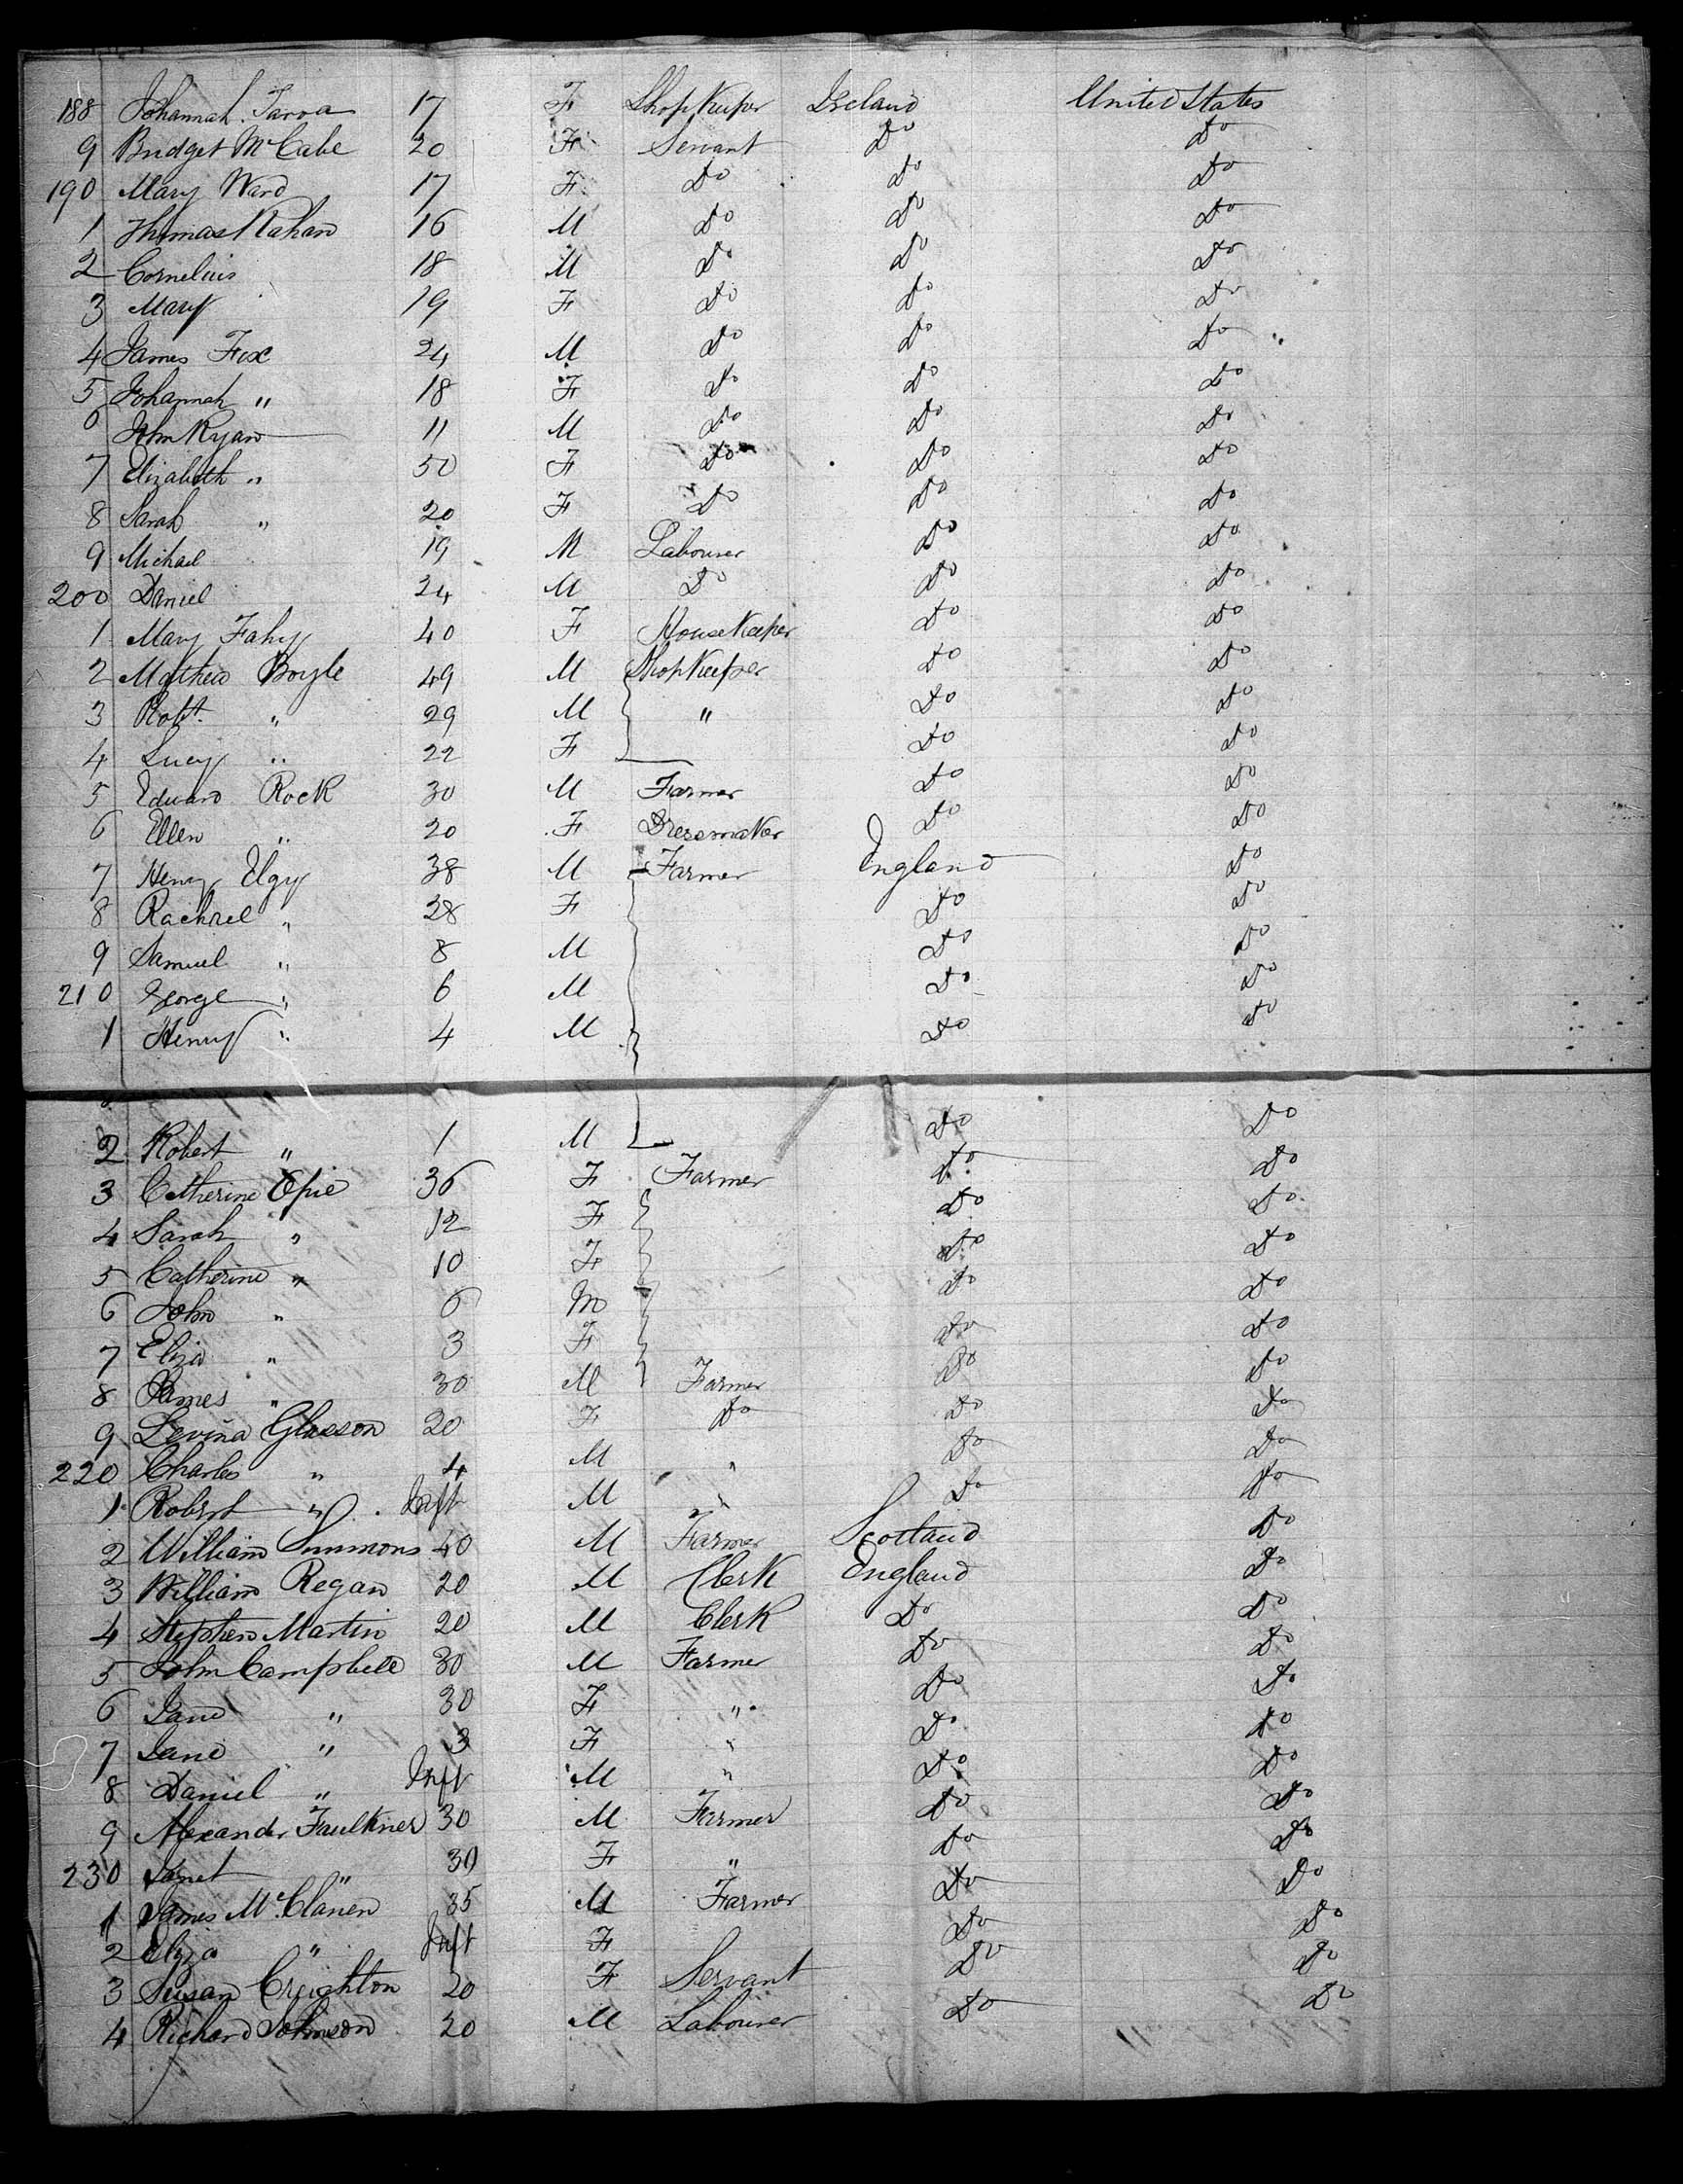 188 Johannah Tarva 17 F Shopkeeper Ireland United States
9 Bridget McCabe 20 F Servant Do Do
190 Mary Ward 17 F Do Do Do
1 Thomas Kahan 16 M Do Do Do
2 Cornelius 18 M Do Do Do
3 Mary 19 F Do Do Do
4 James Fox 24 M Do Do Do
5 Johannah " 18 F Do Do Do
6 John Ryan 11 M Do Do Do
7 Elizabeth " 50 F Do Do Do
8 Sarah " 20 F Do Do Do
9 Michael 19 M Labourer Do Do
200 Daniel 24 M Do Do Do
1 Mary Fahy 40 F Housekeeper Do Do
2 Mathew Boyle 49 M Shopkeeper Do Do
3 Robt. " 29 M " Do Do
4 Lucy " 22 F Do Do
5 Edward Rock 30 M Farmer Do Do
6 Ellen " 20 F Dressmaker Do Do
7 Henry Elgy 38 M Farmer England Do
8 Rachael " 28 F Do Do
9 Samuel " 8 M Do Do
210 George " 6 M Do Do
1 Henry " 4 M Do Do
2 Robert " 1 M Do Do
3 Catherine Opie 36 F Farmer Do Do
4 Sarah " 12 F Do Do
5 Catherine " 10 F Do Do
6 John " 6 M Do Do
7 Eliza " 3 F Do Do
8 James " 30 M Farmer Do Do
9 Levina Glasson 20 F Do Do Do
220 Charles " 4 M " Do Do
1 Robert " Inft M " Do Do
2 William Simmons 40 M Farmer Scotland Do
3 William Regan 20 M Clerk England Do
4 Stephen Martin 20 M Clerk Do Do
5 John Campbell 30 M Farmer Do Do
6 Jane " 30 F " Do Do
7 Jane " 3 F " Do Do
8 Daniel " Inft M " Do Do
9 Alexander Faulkner 30 M Farmer Do Do
230 Janet " 30 F " Do Do
1 James McClanen 35 M Farmer Do Do
2 Eliza " Inft F Do Do
3 Susan Creighton 20 F Servant Do Do
4 Richard Johnson 20 M Labourer Do Do